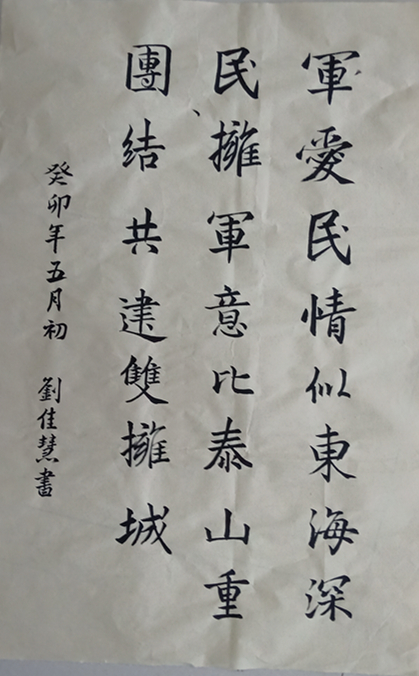 軍愛民情似東海深
民擁軍意比泰山重
團結共建雙擁城
癸卯年五月初 劉佳慧書